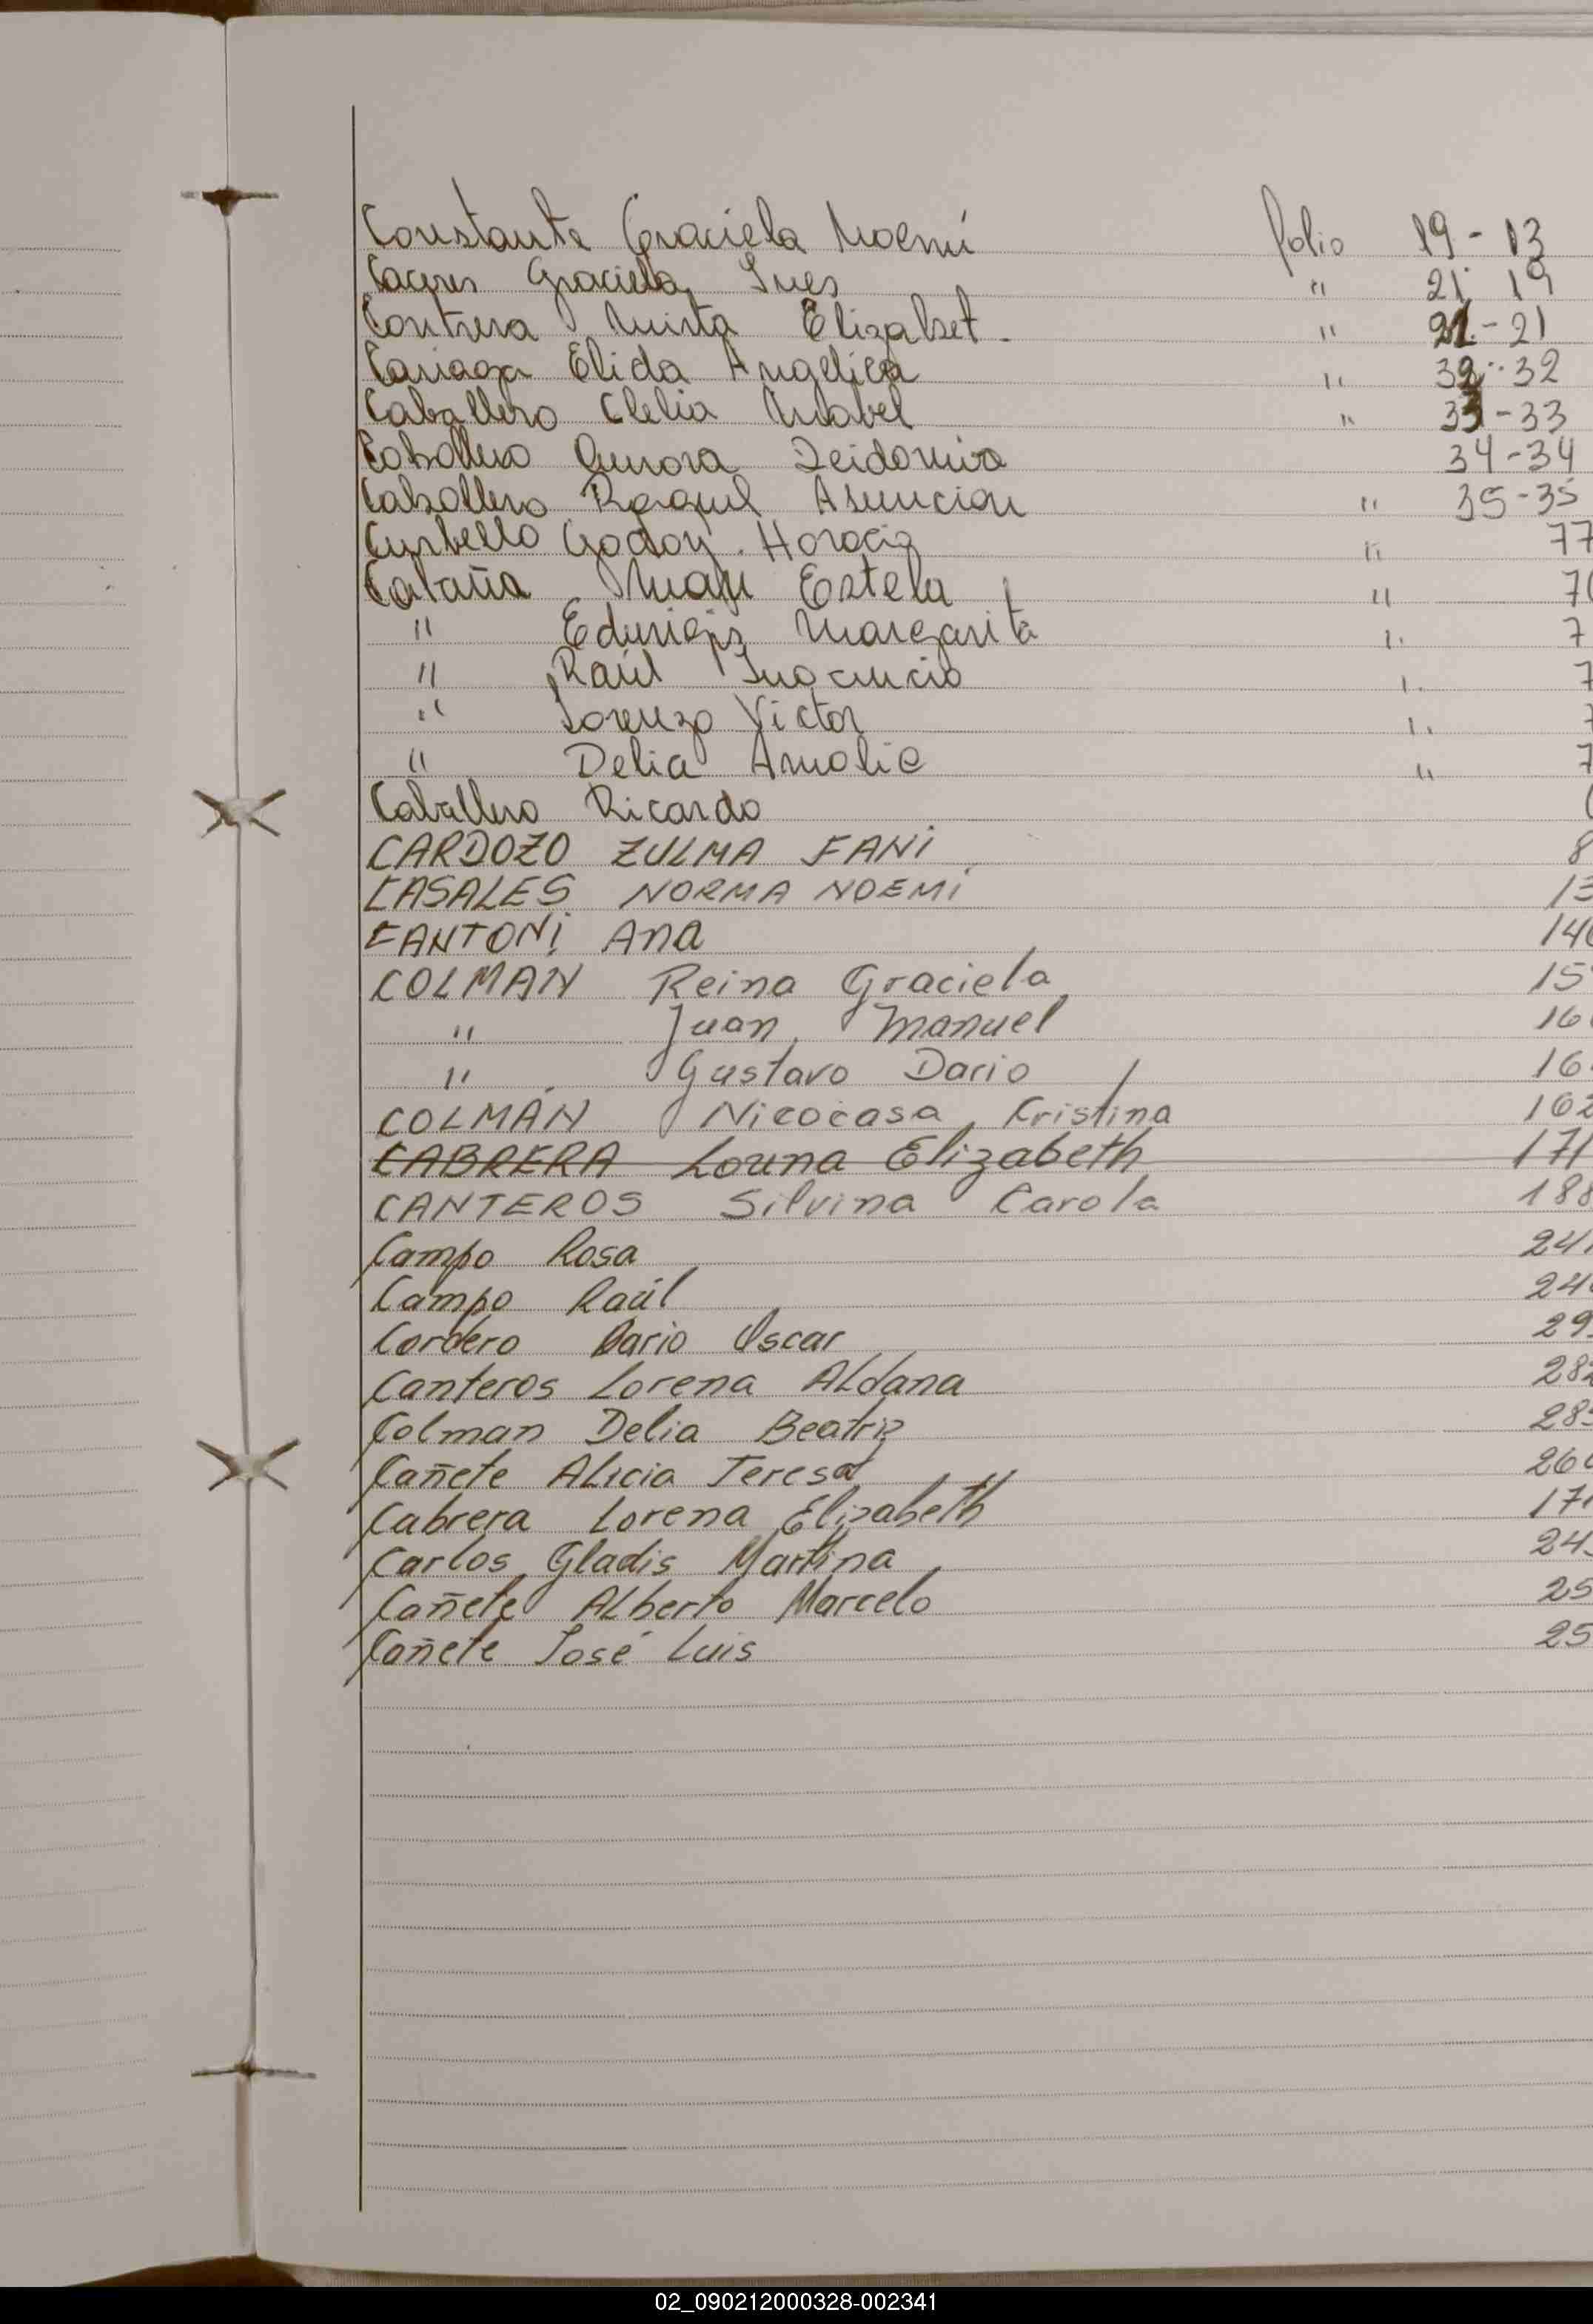 Constante Graciela Noemí folio 19 - 13
Caceres Graciela Ines " 21 19
Contrera Mirta Elizabet - " 21 - 21
Cariaga Elida Angelica " 32 - 32
Caballero Clelia Mabel " 33 - 33
Caballero Aurora Zeidomira 34 - 34
Caballero Raquel Asuncion " 35 - 35
Curbello Godoy Horacio " 77
Cataña Estela "
" Eduvigis Margarita "
" Raúl Inocencio "
" Lorenzo Victor "
" Delia Amalia "
Caballero Ricardo
CARDOZO ZULMA FANI 8
CASALES NORMA NOEMI 13
CANTONI Ana 14
COLMAN Reina Graciela 15
" Juan Manuel 16
" Gustavo Dario 16
COLMÁN Nicocasa Cristina 162
CABRERA Lorena Elizabeth 171
CANTEROS Silvina Carola 188
Campo Rosa 24
Campo Raúl 24
Cordero Dario Oscar 29
Canteros Lorena Aldana 28
Colman Delia Beatriz 28
Cañete Alicia Teresa 26
Cabrera Lorena Elizabeth 17
Carlos Gladis Martina 24
Cañete Alberto Marcelo 25
Cañete José Luis 25
02_090212000328-002341